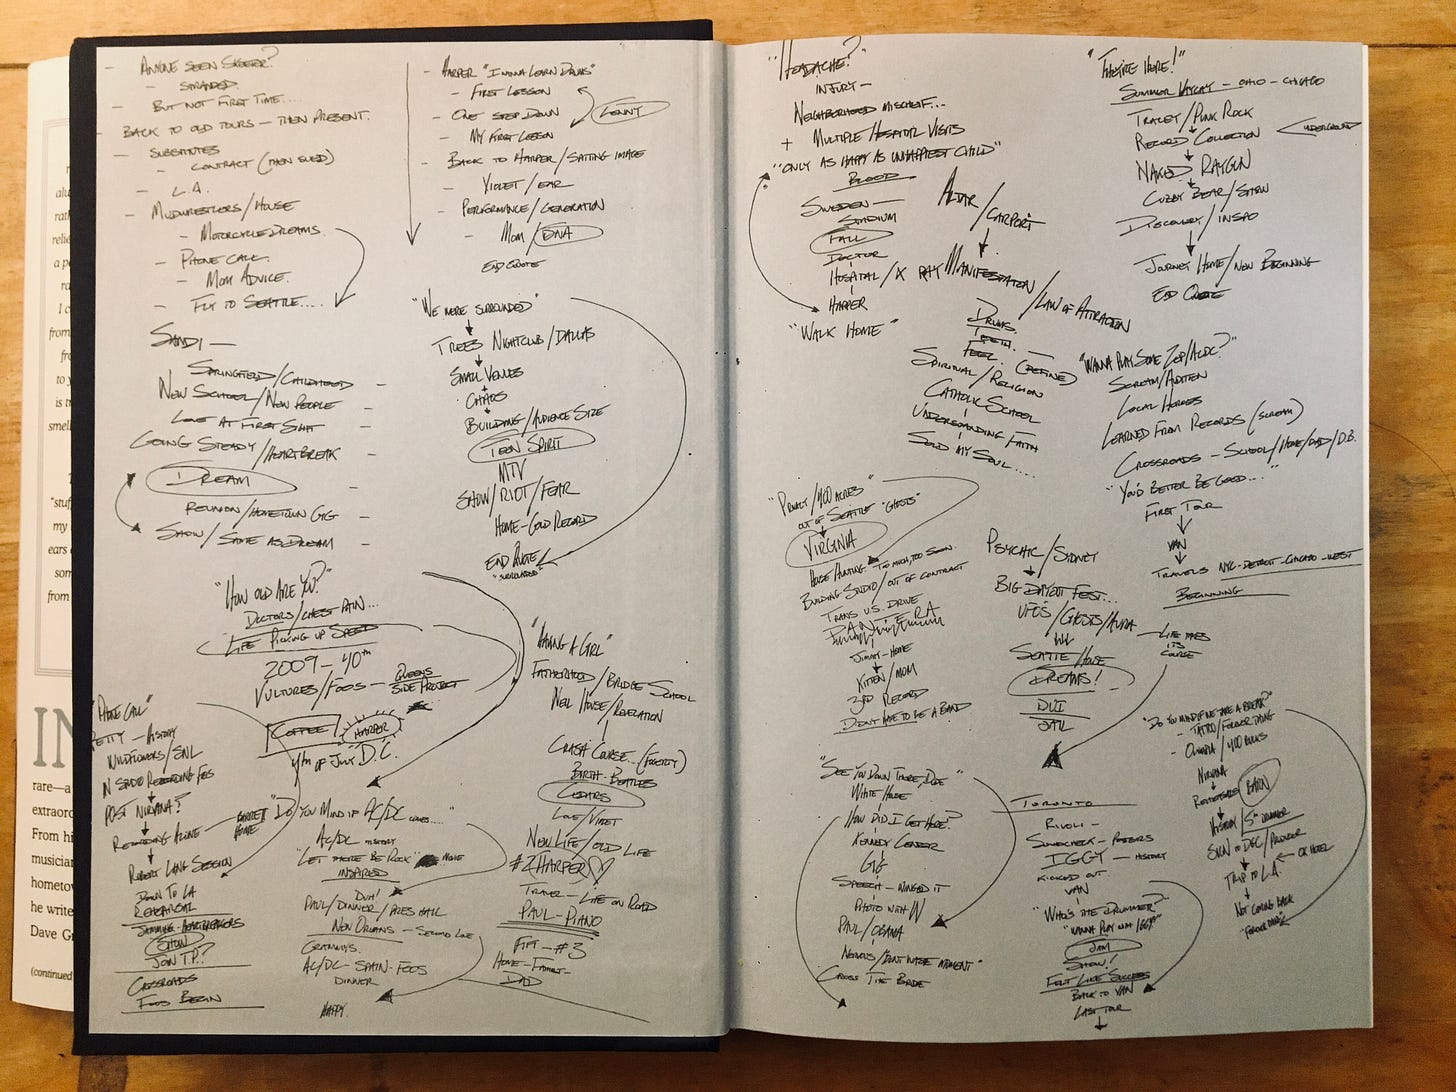 - ANYONE SEEN SKEETER?
- STRANDED.
- BUT NOT FIRST TIME....
- BACK TO OLD TOURS — THEN PRESENT.
- SUBSTITUTES
- CONTRACT (THEN SUED)
- L.A.
- MUDWRESTLERS/HOUSE
- MOTORCYCLE DREAMS
- PHONE CALL
- MOM ADVICE.
- FLY TO SEATTLE....
SANDI —
SPRINGFIELD/CHILDHOOD
NEW SCHOOL/NEW PEOPLE
LOVE AT FIRST SIGHT
GOING STEADY/HEARTBREAK
DREAM
REUNION/HOMETOWN GIG
SHOW/SAME AS DREAM
- HARPER "I WANNA LEARN DRUMS"
- FIRST LESSON
- ONE STEP DOWN
LENNY
- MY FIRST LESSON
- BACK TO HARPER/SITTING IMAGE
- VIOLET/EAR
- PERFORMANCE/GENERATION
- MOM/DNA
END QUOTE
"WE WERE SURROUNDED"
TREES NIGHTCLUB/DALLAS
SMALL VENUES
CHAOS
BUILDING/AUDIENCE SIZE
TEEN SPIRIT
MTV
SHOW/RIOT/FEAR
HOME-GOLD RECORD
END QUOTE
"SURROUNDED"
"HOW OLD ARE YOU?"
DOCTORS/CHEST PAIN...
LIFE PICKING UP SPEED
2009 - 40TH
VULTURES/FOOS — QUEENS
SIDE PROJECT
COFFEE HARPER
4TH OF JULY D.C.
"PHONE CALL"
PETTY - HISTORY
WILDFLOWERS/SNL
IN STUDIO RECORDING FOOS
POST NIRVANA?
RECORDING ALONE — BARRETT
HOME
ROBERT LANG SESSION
DOWN TO LA
REHEARSAL
JAMMING - HEARTBREAKERS
SHOW
JOIN T.P.?
CROSSROADS
FOOS BEGIN
"DO YOU MIND IF AC/DC COMES...."
AC/DC HISTORY
"LET THERE BE ROCK" MOVIE
INSPIRED
DUH!
PAUL/DINNER/PRES HALL
NEW ORLEANS — SECOND LINE
GRAMMYS
AC/DC - SPAIN - FOOS
DINNER
HAPPY.
"HAVING A GIRL"
FATHERHOOD/BRIDGE SCHOOL
NEIL HOUSE/REVELATION
CRASH COURSE...
BIRTH - BEATLES
CEDARS
LOVE/VIOLET
NEW LIFE/OLD LIFE
#2 HARPER
TRAVEL - LIFE ON ROAD
PAUL - PIANO
#3
HOME - FAMILY -
DAD
"HEADACHE?"
INJURY —
NEIGHBORHOOD MISCHIEF...
+ MULTIPLE HOSPITAL VISITS
"ONLY AS HAPPY AS UNHAPPIEST CHILD"
BLOOD
SWEDEN —
STADIUM
FALL
DOCTOR
HOSPITAL/X RAY
HARPER
"WALK HOME"
ALTAR/CARPORT
MANIFESTATION/LAW OF ATTRACTION
DRUMS.
TEETH.
FEEL. — (DEFINE)
SPIRITUAL/RELIGION
CATHOLIC SCHOOL
UNDERSTANDING FAITH
SOLD MY SOUL....
"THEY'RE HERE!"
SUMMER VACAY - OHIO - CHICAGO
TRACEY/PUNK ROCK
RECORD COLLECTION UNDERGROUND
NAKED RAYGUN
CUBBY BEAR/SHOW
DISCOVERY/INSPO
JOURNEY HOME/NEW BEGINNING
END QUOTE
"WANNA PLAY SOME ZEP/ACDC?"
SCREAM/AUDITION
LOCAL HEROES
LEARNED FROM RECORDS (SCREAM)
CROSSROADS - SCHOOL/HOME/DAD/D.B.
"YOU'D BETTER BE GOOD..."
FIRST TOUR
VAN
TRAVELS NYC-DETROIT-CHICAGO-WEST
BEGINNING
"PRIVACY/400 ACRES"
OUT OF SEATTLE "GHOSTS"
VIRGINIA
HOUSE HUNTING - TOO MUCH, TOO SOON
BUILDING STUDIO/OUT OF CONTRACT
TRANS U.S. DRIVE
PANTERA
JIMMY - HOME
KITTEN/MOM
3RD RECORD
DIDN'T HAVE TO BE A BAND
PSYCHIC/SYDNEY
BIG DAY OUT FEST...
UFO'S/GHOSTS/AURA
SEATTLE HOUSE
DREAMS!
DUI
JAIL
LIFE TAKES
ITS
COURSE
"SEE YOU DOWN THERE, DUDE"
WHITE HOUSE
HOW DID I GET HERE?
KENNEDY CENTER
GIG
SPEECH - WINGED IT
PHOTO WITH W
PAUL/OBAMA
NERVOUS/"DON'T WASTE MOMENT"
CROSS THE BRIDGE
TORONTO
RIVOLI -
SOUNDCHECK - POSTERS
IGGY - HISTORY
KICKED OUT
VAN
"WHO'S THE DRUMMER?"
"WANNA PLAY WITH IGGY?"
JAM
SHOW!
FELT LIKE SUCCESS
BACK TO VAN
LAST TOUR
"DO YOU MIND IF WE TAKE A BREAK?"
- TATTOO/
- OLYMPIA/400 BUCKS
NIRVANA
REHEARSALS BARN
HISTORY/5TH DRUMMER
SIGN TO DGC/PRODUCER
TRIP TO L.A. OK HOTEL
NOT COMING BACK